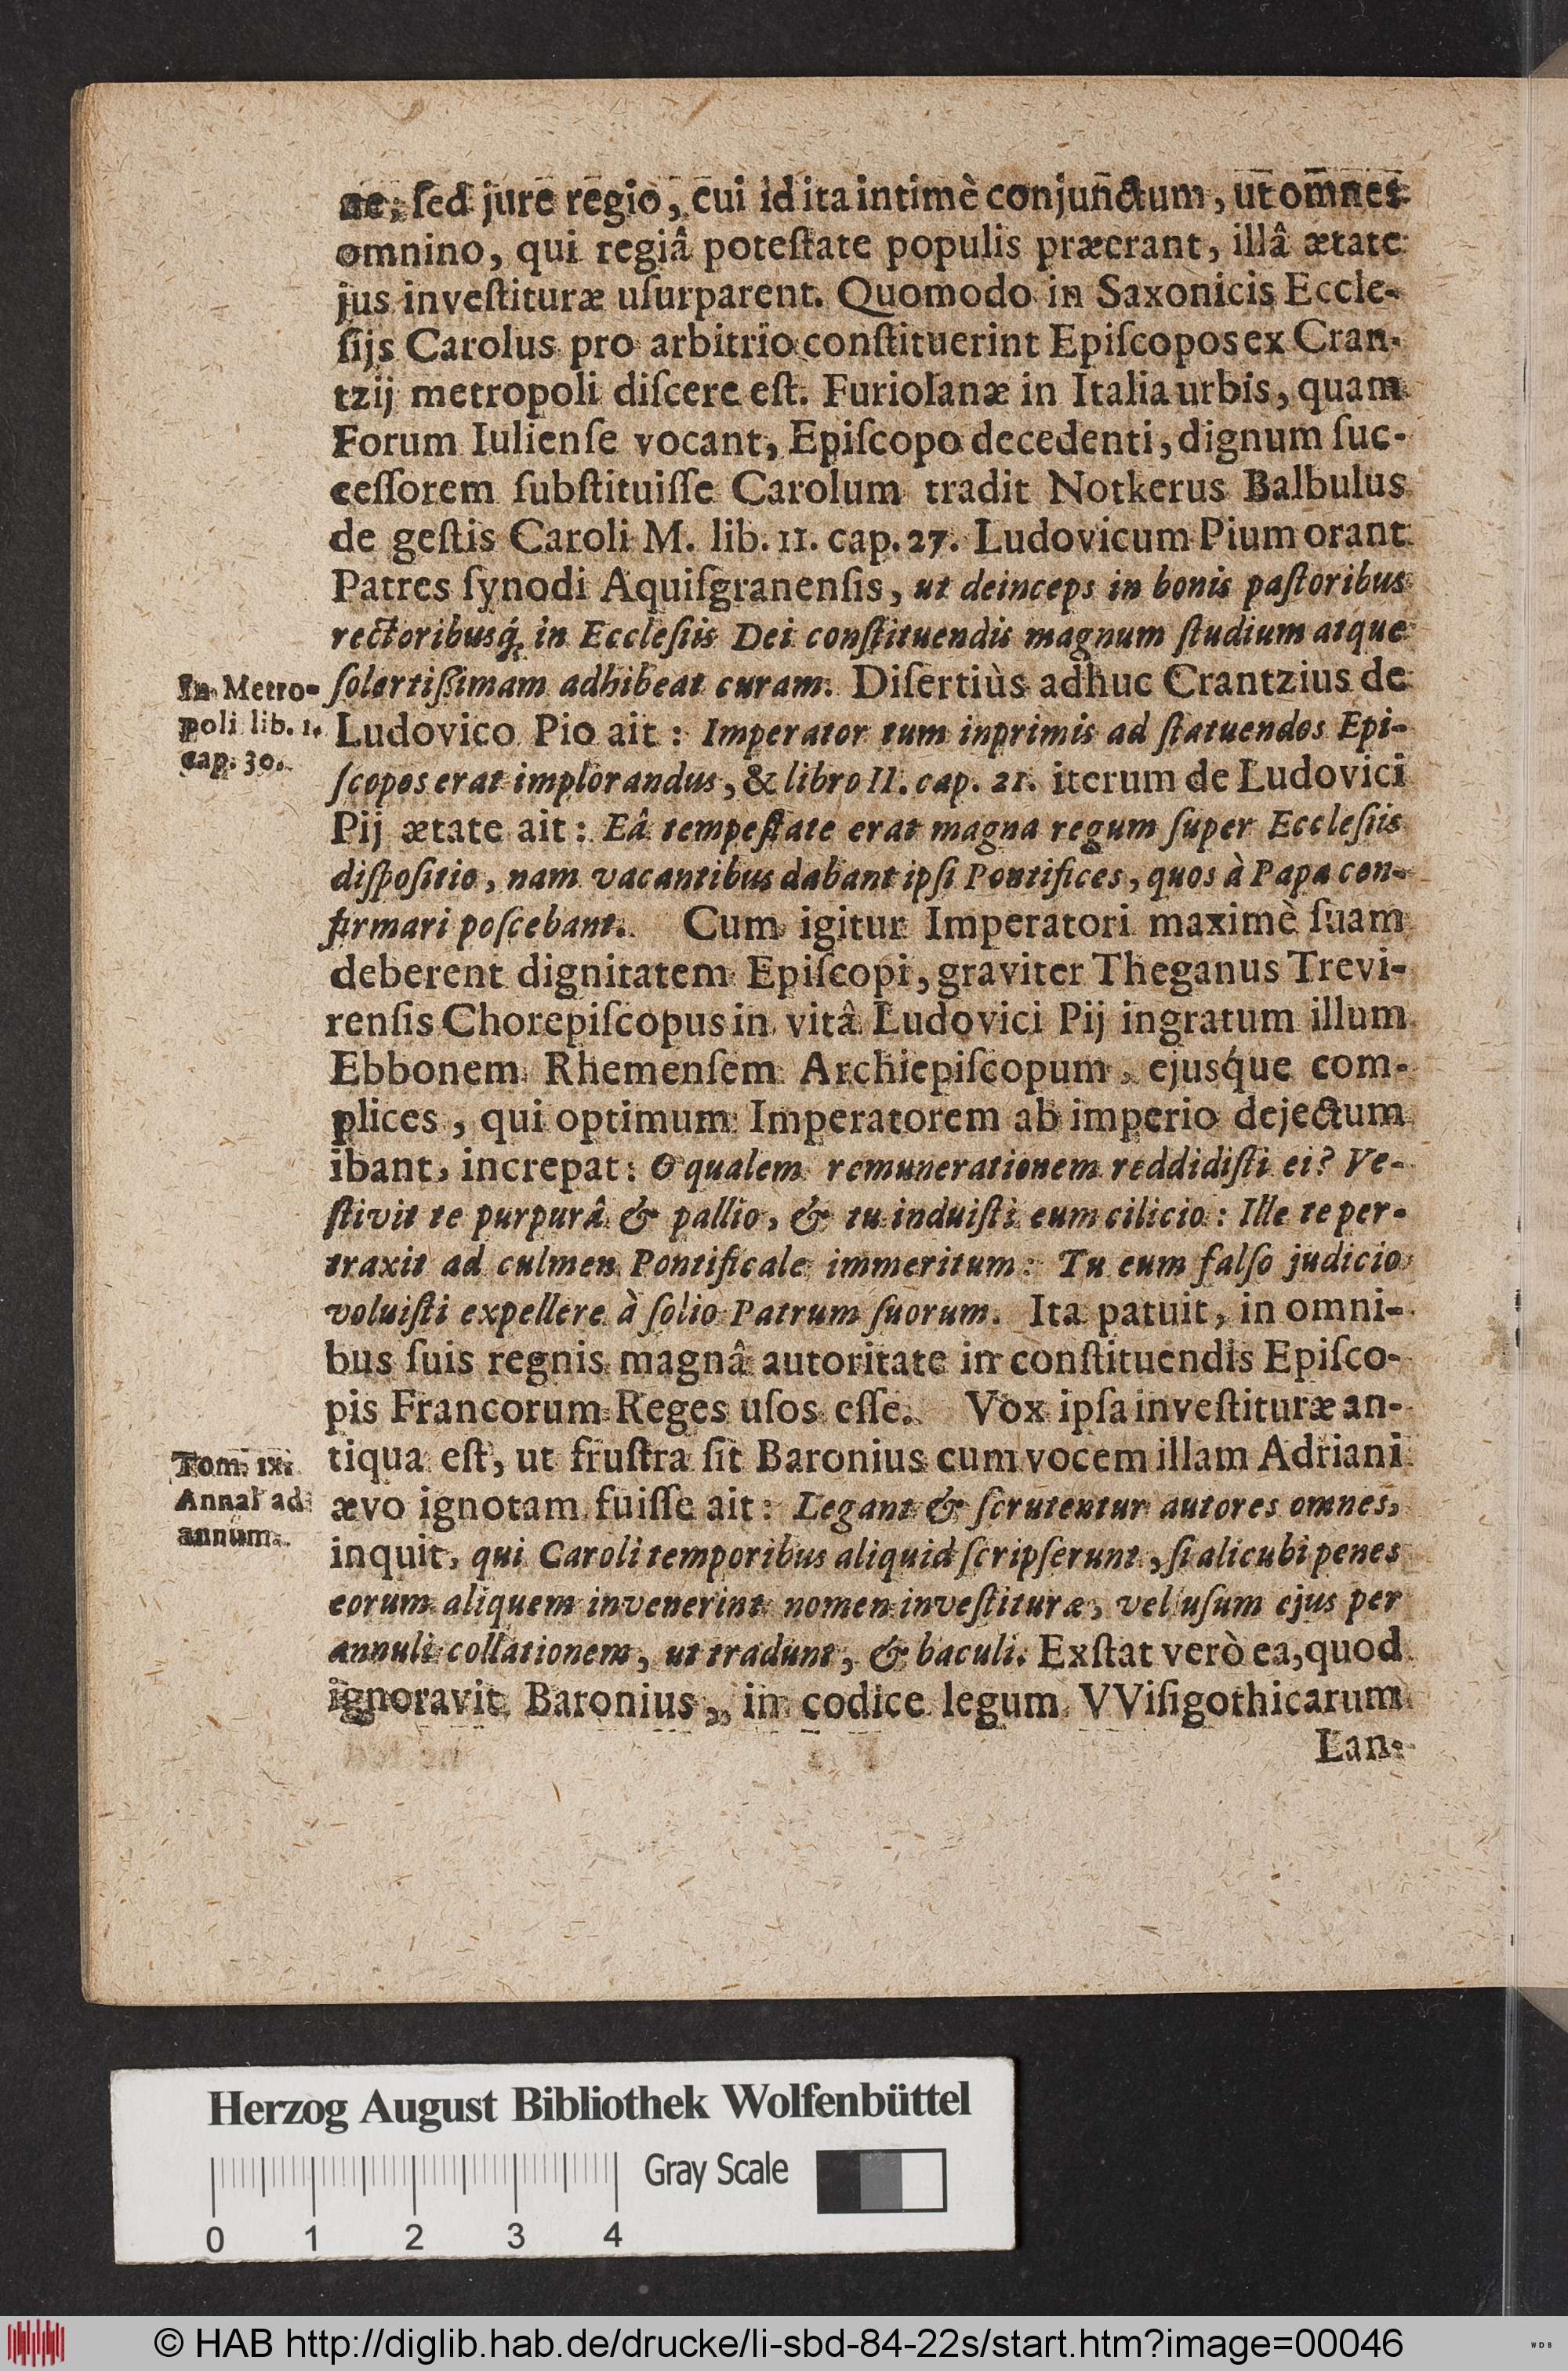 ne, ſed jure regio, cui id ita intimè conjunctum, ut omnes
omnino, qui regiâ poteſtate populis præerant, illâ ætate
jus inveſtituræ uſurparent. Quomodo in Saxonicis Eccle-
ſijs Carolus pro arbitrio conſtituerint Epiſcopos ex Cran-
tzij metropoli diſcere eſt. Furiolanæ in Italia urbis, quam
Forum Iulienſe vocant, Epiſcopo decedenti, dignum ſuc-
ceſſorem ſubſtituiſſe Carolum tradit Notkerus Balbulus
de geſtis Caroli M. lib. II. cap. 27. Ludovicum Pium orant
Patres ſynodi Aquiſgranenſis, ut deinceps in bonis paſtoribus
rectoribusq́; in Eccleſiis Dei conſtituendis magnum ſtudium atque
In Metro-
poli lib. 1.
cap. 30.
ſolertißimam adhibeat curam. Diſertiùs adhuc Crantzius de
Ludovico Pio ait: Imperator tum inprimis ad ſtatuendos Epi-
ſcopos erat implorandus, & libro II. cap. 21. iterum de Ludovici
Pij ætate ait: Eâ tempeſtate erat magna regum ſuper Eccleſiis
diſpoſitio, nam vacantibus dabant ipſi Pontifices, quos à Papa con-
firmari poſcebant. Cum igitur Imperatori maximè ſuam
deberent dignitatem Epiſcopi, graviter Theganus Trevi-
renſis Chorepiſcopus in vitâ Ludovici Pij ingratum illum
Ebbonem Rhemenſem Archiepiſcopum, ejusq́ue com-
plices, qui optimum Imperatorem ab imperio dejectum
ibant, increpat: O qualem remunerationem reddidiſti ei? Ve-
ſtivit te purpurâ & pallio, & tu induiſti eum cilicio: Ille te per-
traxit ad culmen Pontificale immeritum: Tu eum falſo judicio
voluiſti expellere à ſolio Patrum ſuorum. Ita patuit, in omni-
bus ſuis regnis magnâ autoritate in conſtituendis Epiſco-
pis Francorum Reges uſos eſſe. Vox ipſa inveſtituræ an-
Tom. ix.
Annal ad
annum.
tiqua eſt, ut fruſtra ſit Baronius cum vocem illam Adriani
ævo ignotam fuiſſe ait: Legant & ſcrutentur autores omnes,
inquit, qui Caroli temporibus aliquid ſcripſerunt, ſi alicubi penes
eorum aliquem invenerint nomen inveſtituræ, vel uſum ejus per
annuli collationem, ut tradunt, & baculi. Exſtat verò ea, quod
ignoravit Baronius, in codice legum VViſigothicarum
Lan-
Herzog August Bibliothek Wolfenbüttel
Gray Scale
0 1 2 3 4
© HAB http://diglib.hab.de/drucke/li-sbd-84-22s/start.htm?image=00046
WDB